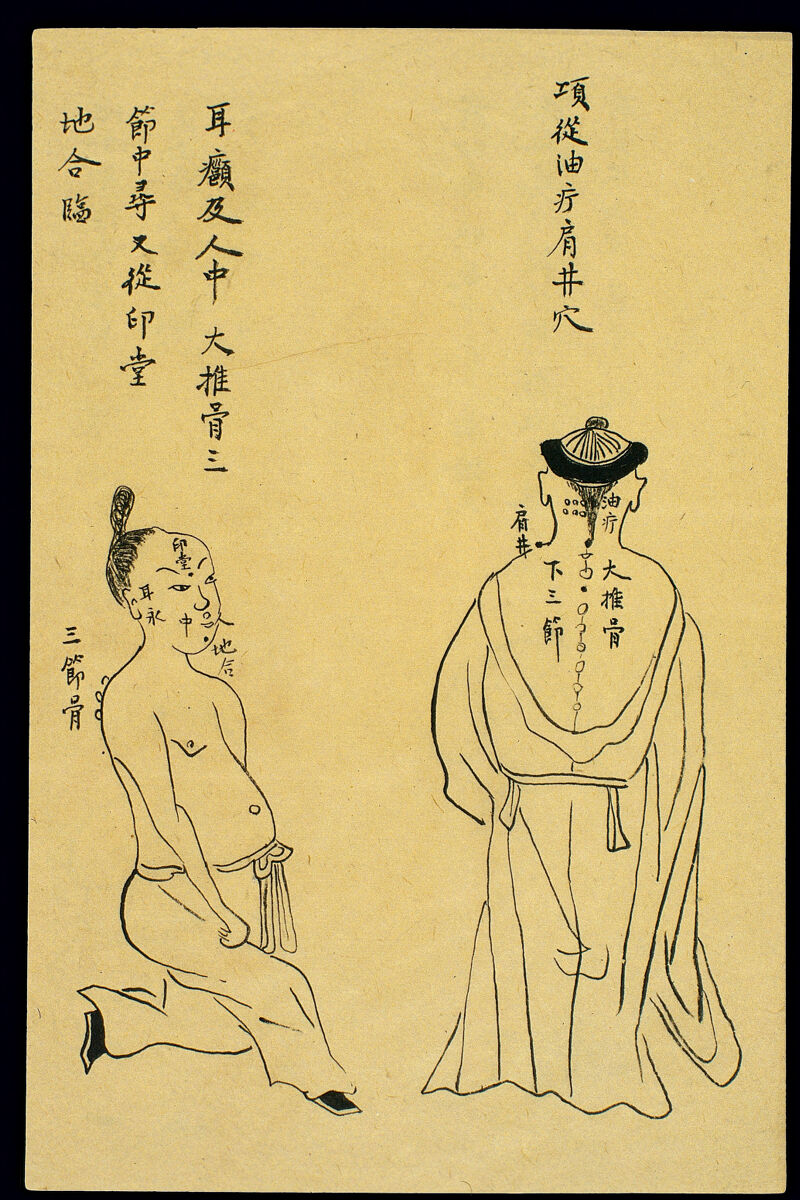 項從油疔肩井穴
耳癲及人中 大推骨三
節中尋又從印堂
地合臨
油疔
肩井
大推骨
下三節
印堂
耳永
人中
地合
三節骨